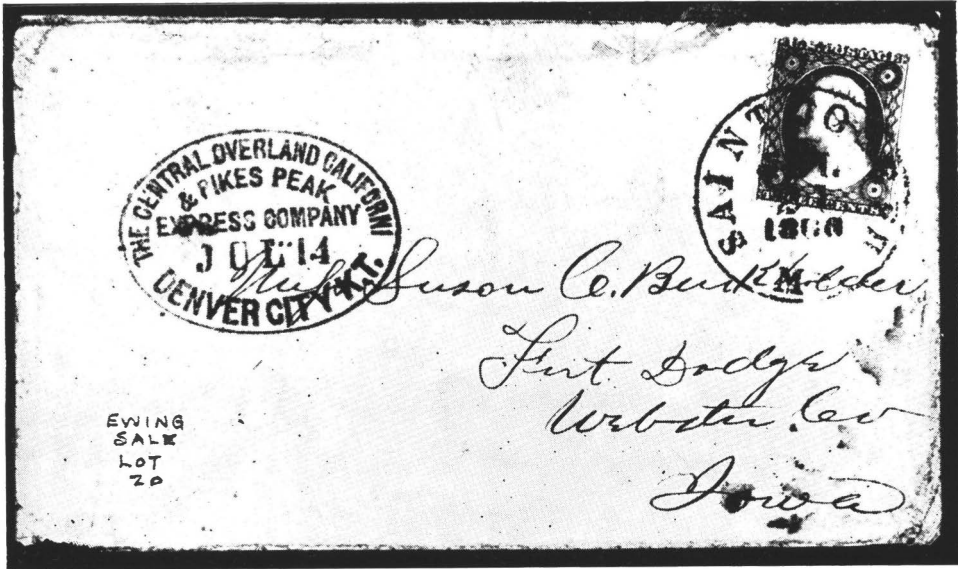 THE CENTRAL OVERLAND CALIFORNI
& PIKES PEAK
EXPRESS COMPANY
JUL 14
DENVER CITY K.T.
SAINT
1860
M
Miss Susan C. Burkholder
Fort Dodge
Webster Co
Iowa
EWING
SALE
LOT
20